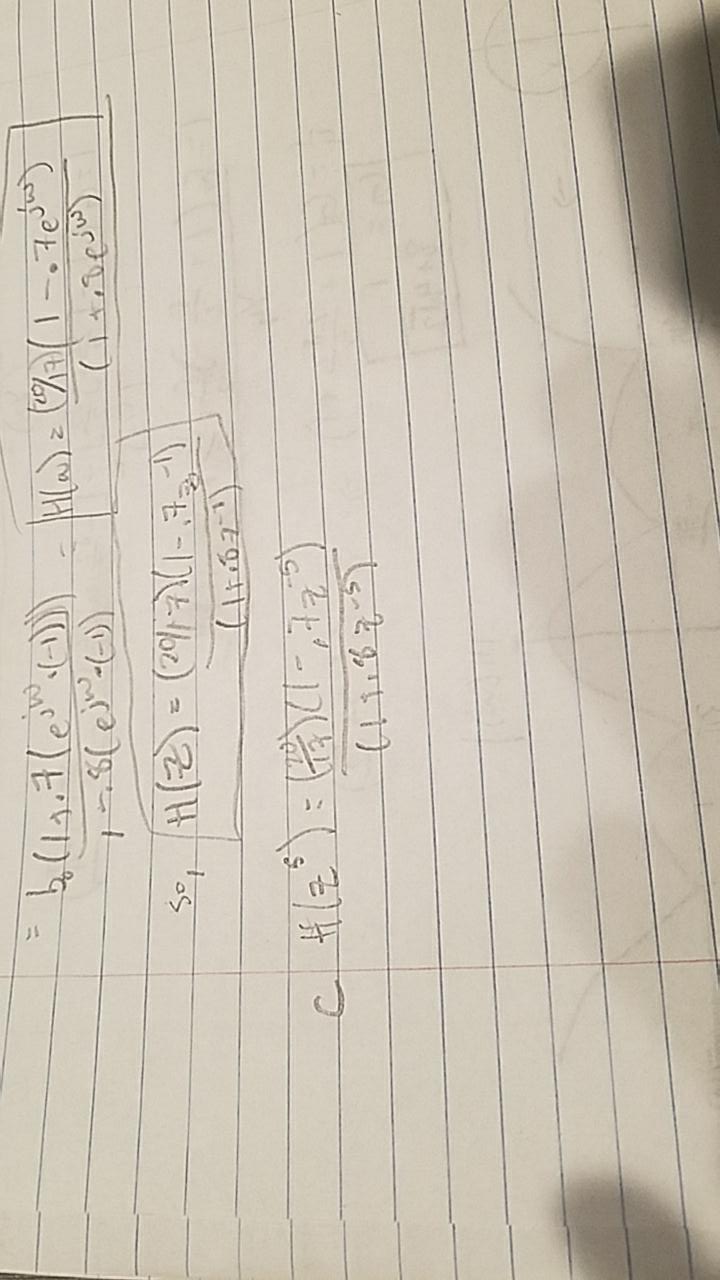 = b₀(1+.7(e^jω·(-1))) / 1-.8(e^jω·(-1)) - H(ω) = (20/17)(1-.7e^jω) / (1+.8e^jω)
so, H(z) = (20/17)(1-.7z^-1) / (1+.8z^-1)
C H(z^5) = (20/17)(1-.7z^-5) / (1+.8z^-5)